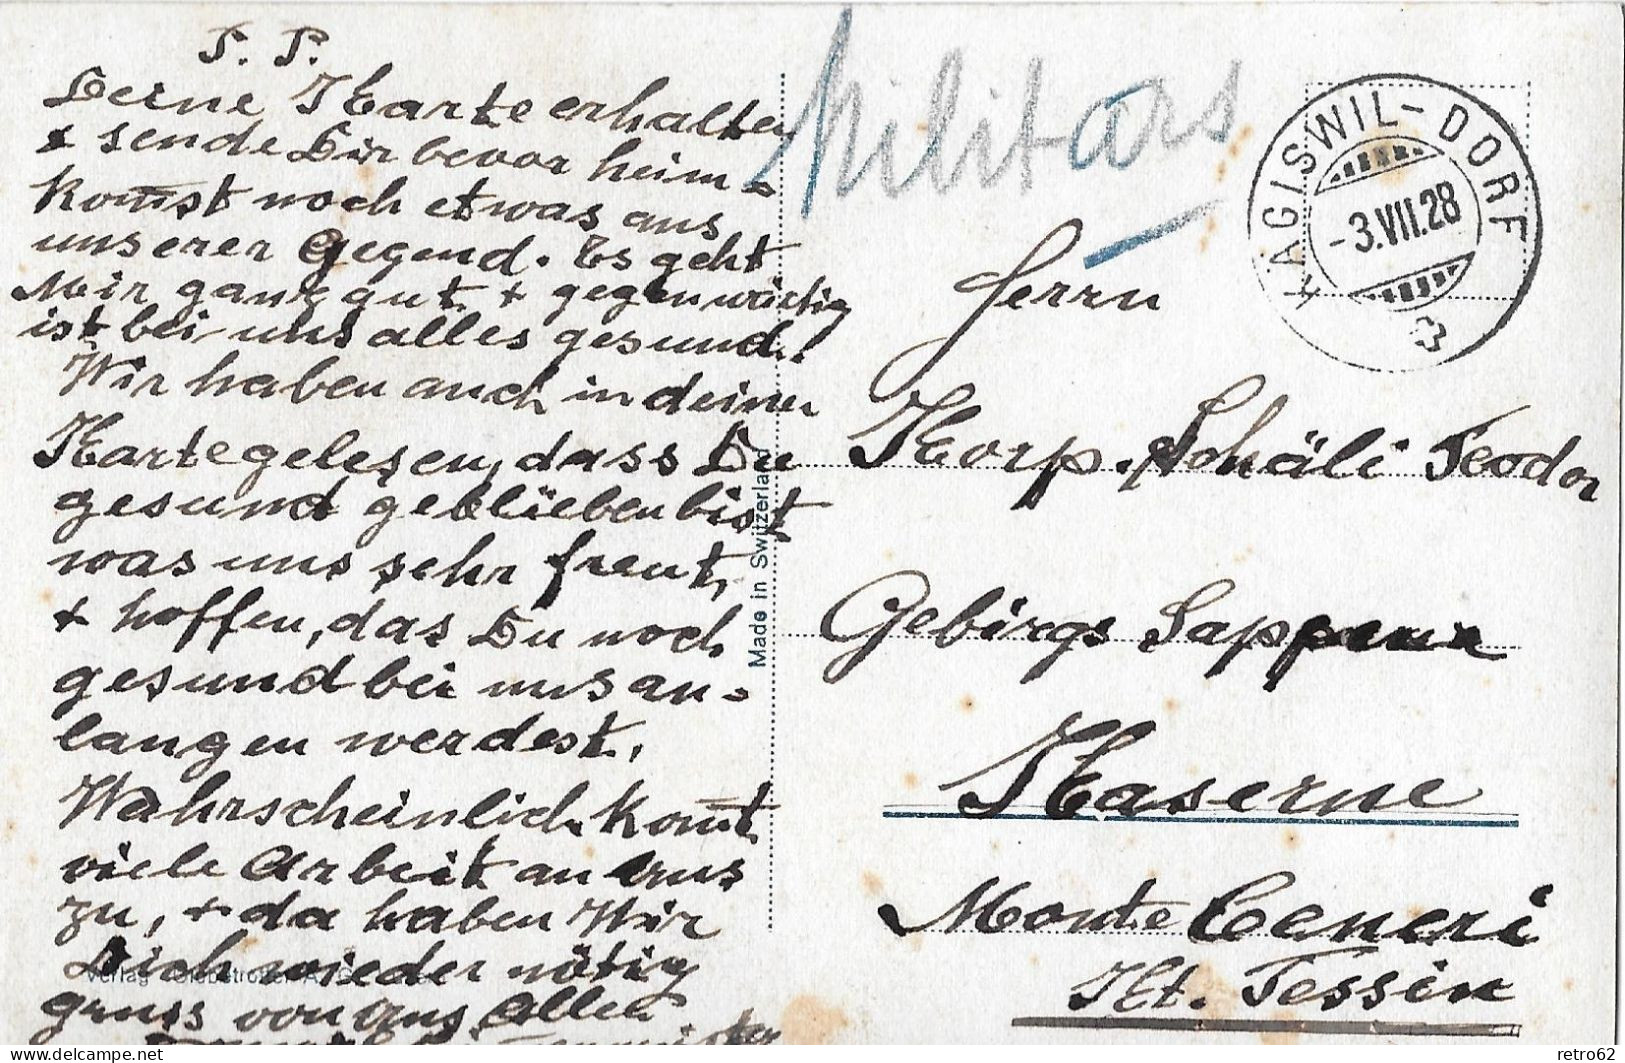 P. P.
Deine Karte erhalten
& sende Dir bevor heim=
komst noch etwas aus
unserer Gegend. Es geht
Mir ganz gut + gegenwärtig
ist bei uns alles gesund.
Wir haben auch in deiner
Karte gelesen, dass Du
gesund geblieben bist
was uns sehr freut,
+ hoffen, das Du noch
gesund bei uns an=
langen werdest.
Wahrscheinlich komt
viele Arbeit an uns
zu, + da haben Wir
Dich wieder nötig
gruss von uns Allen
Verlag Globetrotter A. G.
Made in Switzerland
Militärs
KÄGISWIL-DORF
-3.VII.28
Herrn
Korp. Schäli Teodor
Gebirgs Sappeur
Kaserne
Monte Ceneri
Kt. Tessin
delcampe.net
retro62